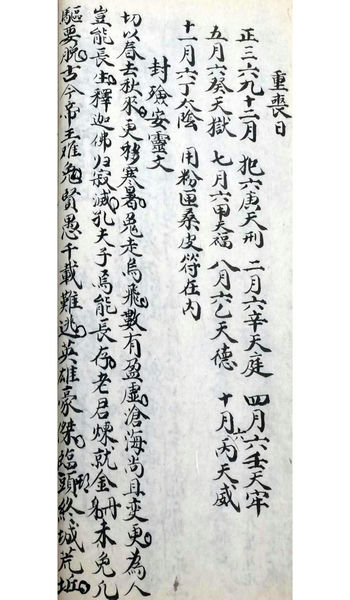 重喪日
正三六九十二月　犯六庚天刑　二月六辛天庭　四月六壬天牢
五月六癸天獄　七月六甲天福　八月六乙天德　十月六丙天威
十一月六丁天陰　用粉匣桑皮符在内
封殮安靈文
切以春去秋來更移寒暑兔走烏飛數有盈虛滄海尚且變更為人
豈能長生釋迦佛归寂滅孔夫子焉能長存老君煉就金身冊未免凡
驅要脫古今帝王难免賢愚千載難逃英雄豪傑臨頭終城荒坵